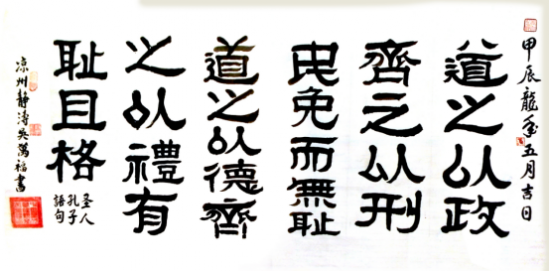 甲辰龍年五月吉日
道之以政
齊之以刑
民免而無耻
道之以德齊
之以禮有
耻且格
圣人
孔子
語句
凉州静涛吴萬福書